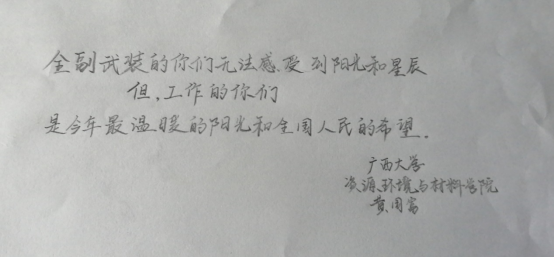 全副武装的你们无法感受到阳光和星辰
但,工作的你们
是今年最温暖的阳光和全国人民的希望.
广西大学
资源环境与材料学院
黄国富